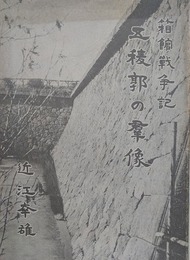 箱館戦争記
五稜郭の羣像
近江幸雄